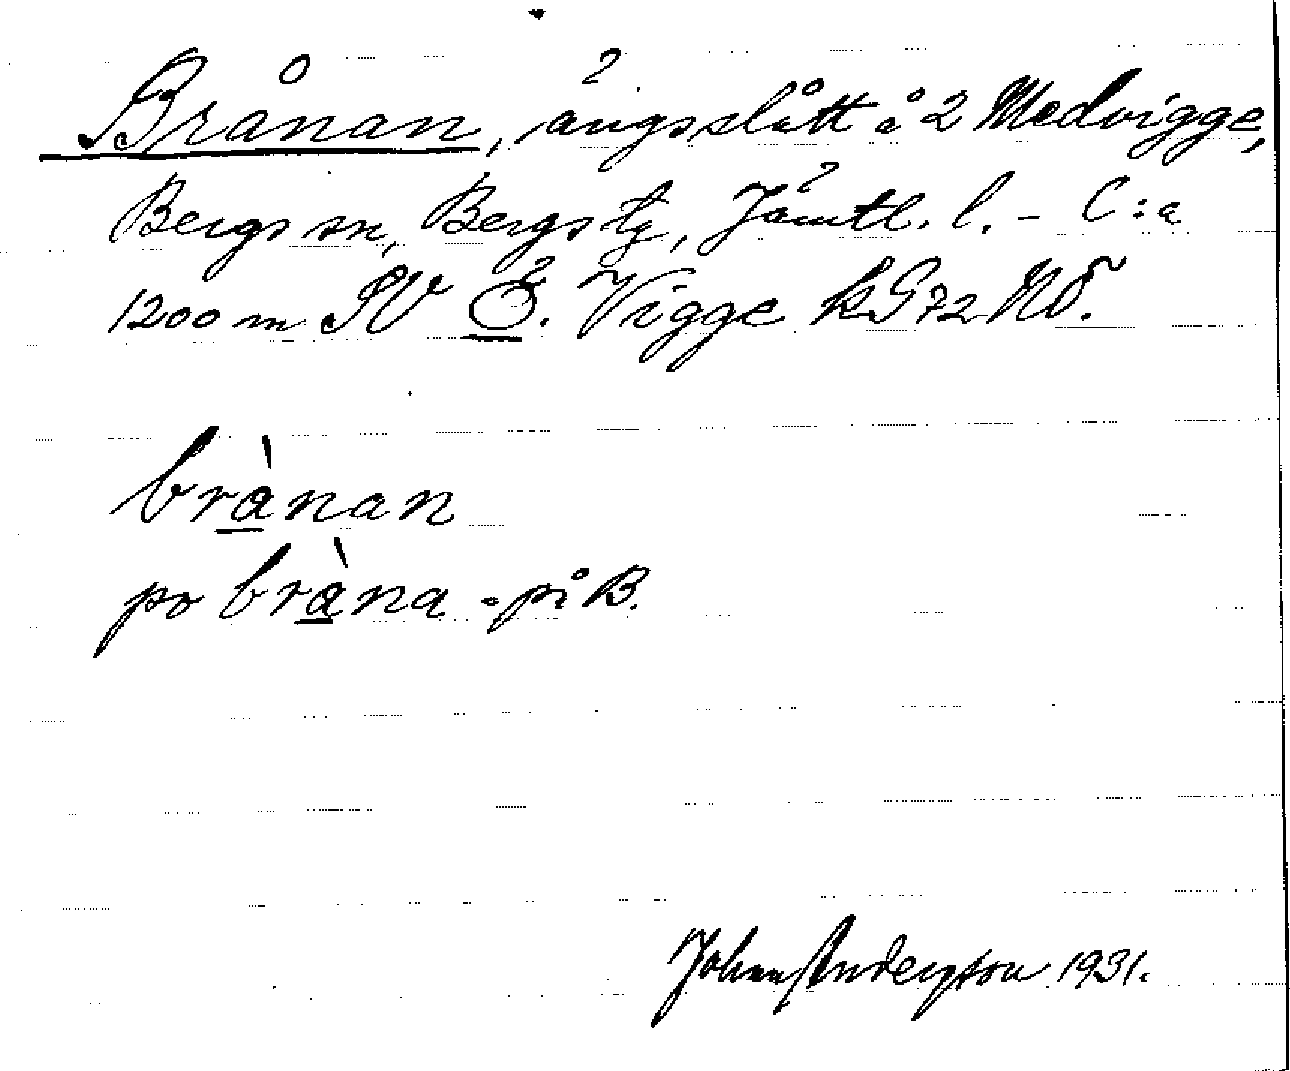 Brånan, ängsslått å 2 Medvigge,
Bergs sn, Bergs tg, Jämtl. l. - C:a
1200 m SV Ö. Vigge kG 72 NÖ.
brànan
po bràna = på B.
Johan Andersson 1931.